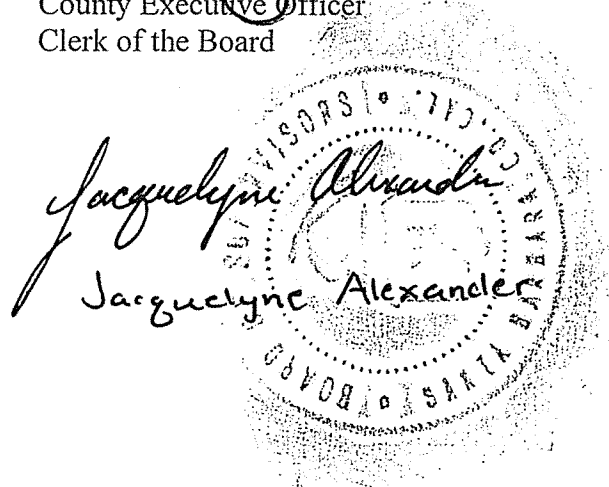 County Executive Officer
Clerk of the Board
Jacquelyne Alexander
Jacquelyne Alexander
BOARD
VISORS
CO. CAL.
SANTA BARBARA